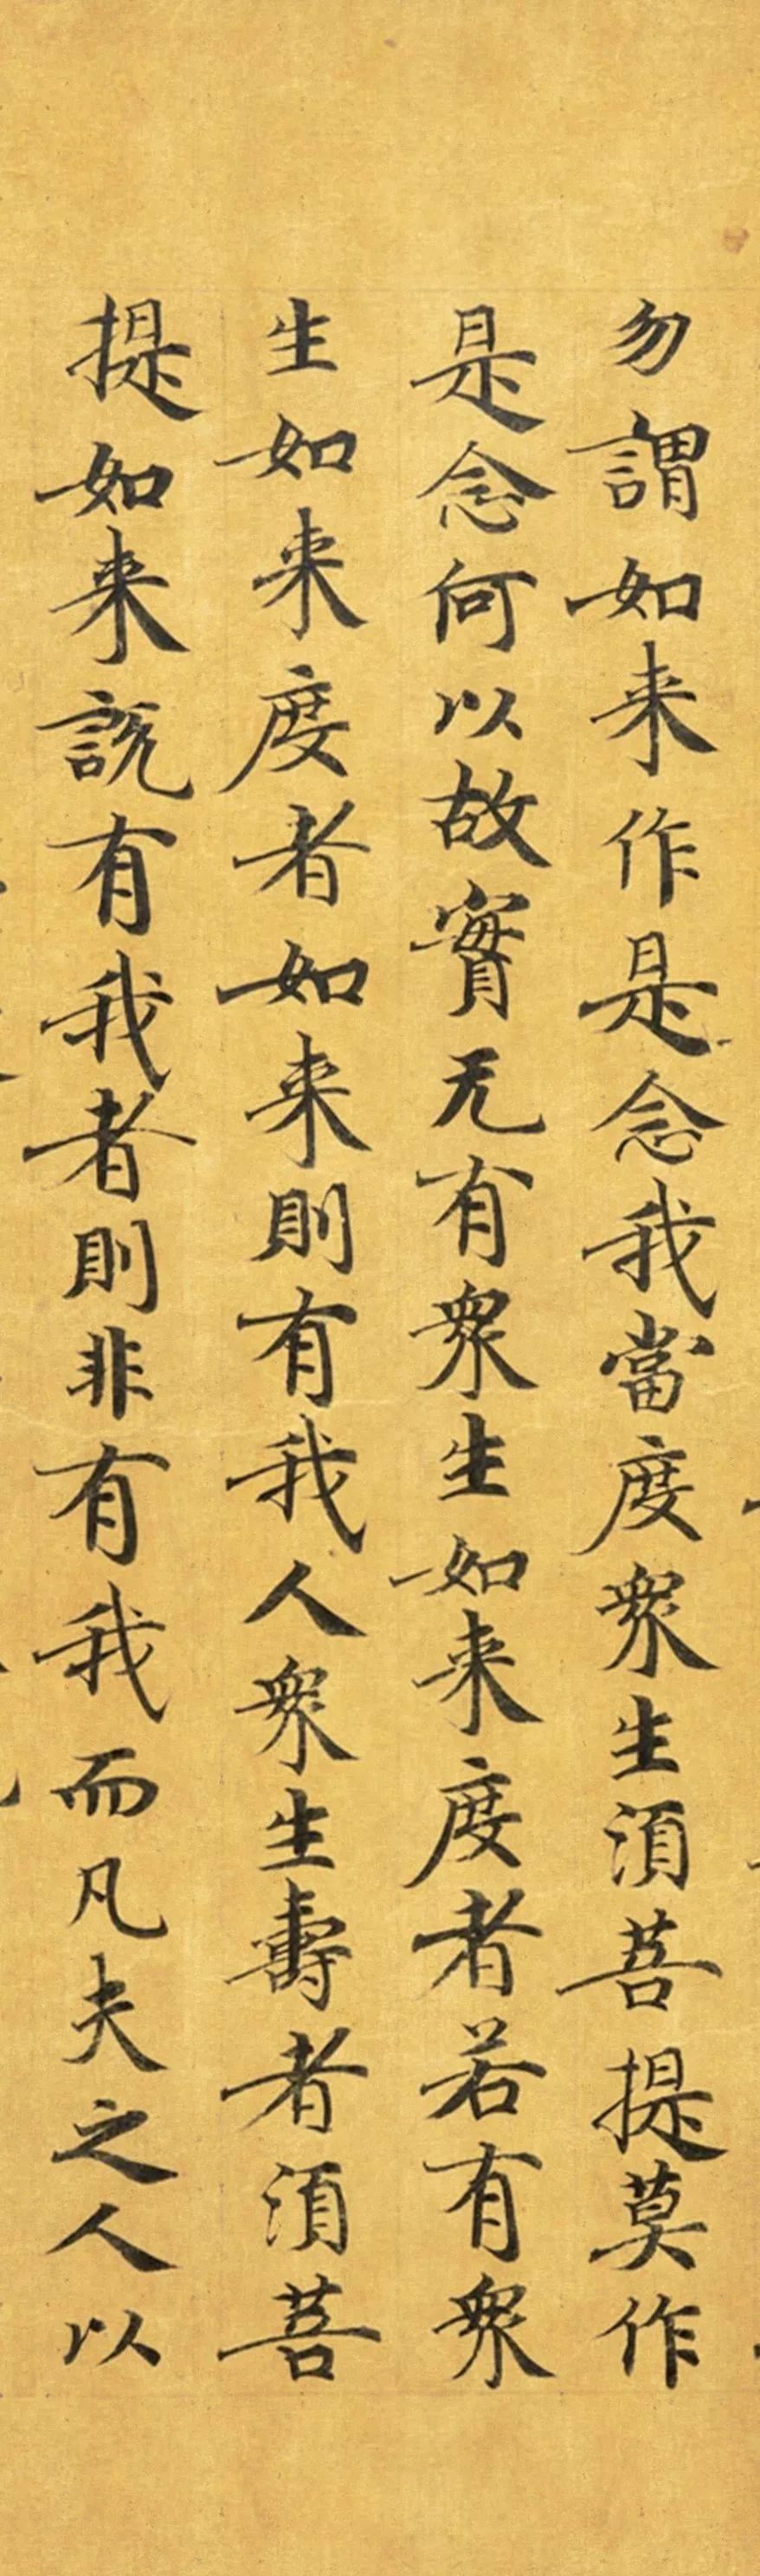 勿謂如来作是念我當度衆生湏菩提莫作
是念何以故實无有衆生如来度者若有衆
生如来度者如来則有我人衆生壽者湏菩
提如来説有我者則非有我而凡夫之人以